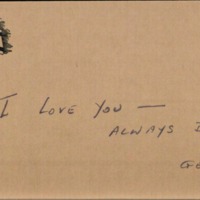 I LOVE YOU —
ALWAYS I
GE